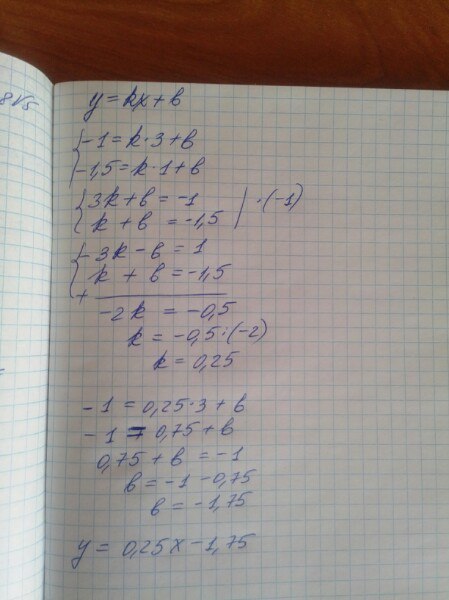 8√5
y = kx + b
-1 = k·3 + b
-1,5 = k·1 + b
3k + b = -1 | ·(-1)
k + b = -1,5
-3k - b = 1
k + b = -1,5
+
-2k = -0,5
k = -0,5 : (-2)
k = 0,25
-1 = 0,25·3 + b
-1 = 0,75 + b
0,75 + b = -1
b = -1 - 0,75
b = -1,75
y = 0,25x - 1,75